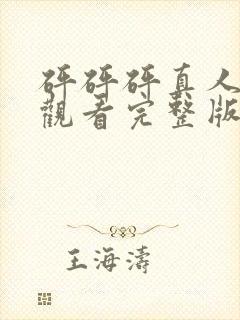 砰砰砰真人
觀看完整版
王海濤